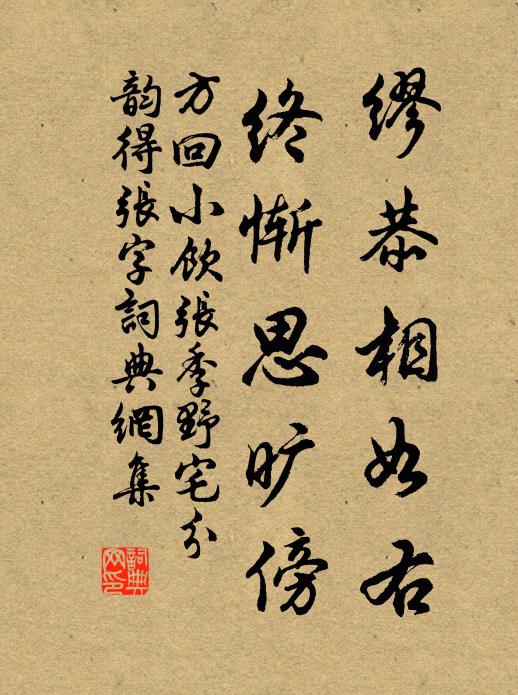 缪恭相如右
终惭思旷傍
方回小饮张季野宅分
韵得张字词典网集
词典网印